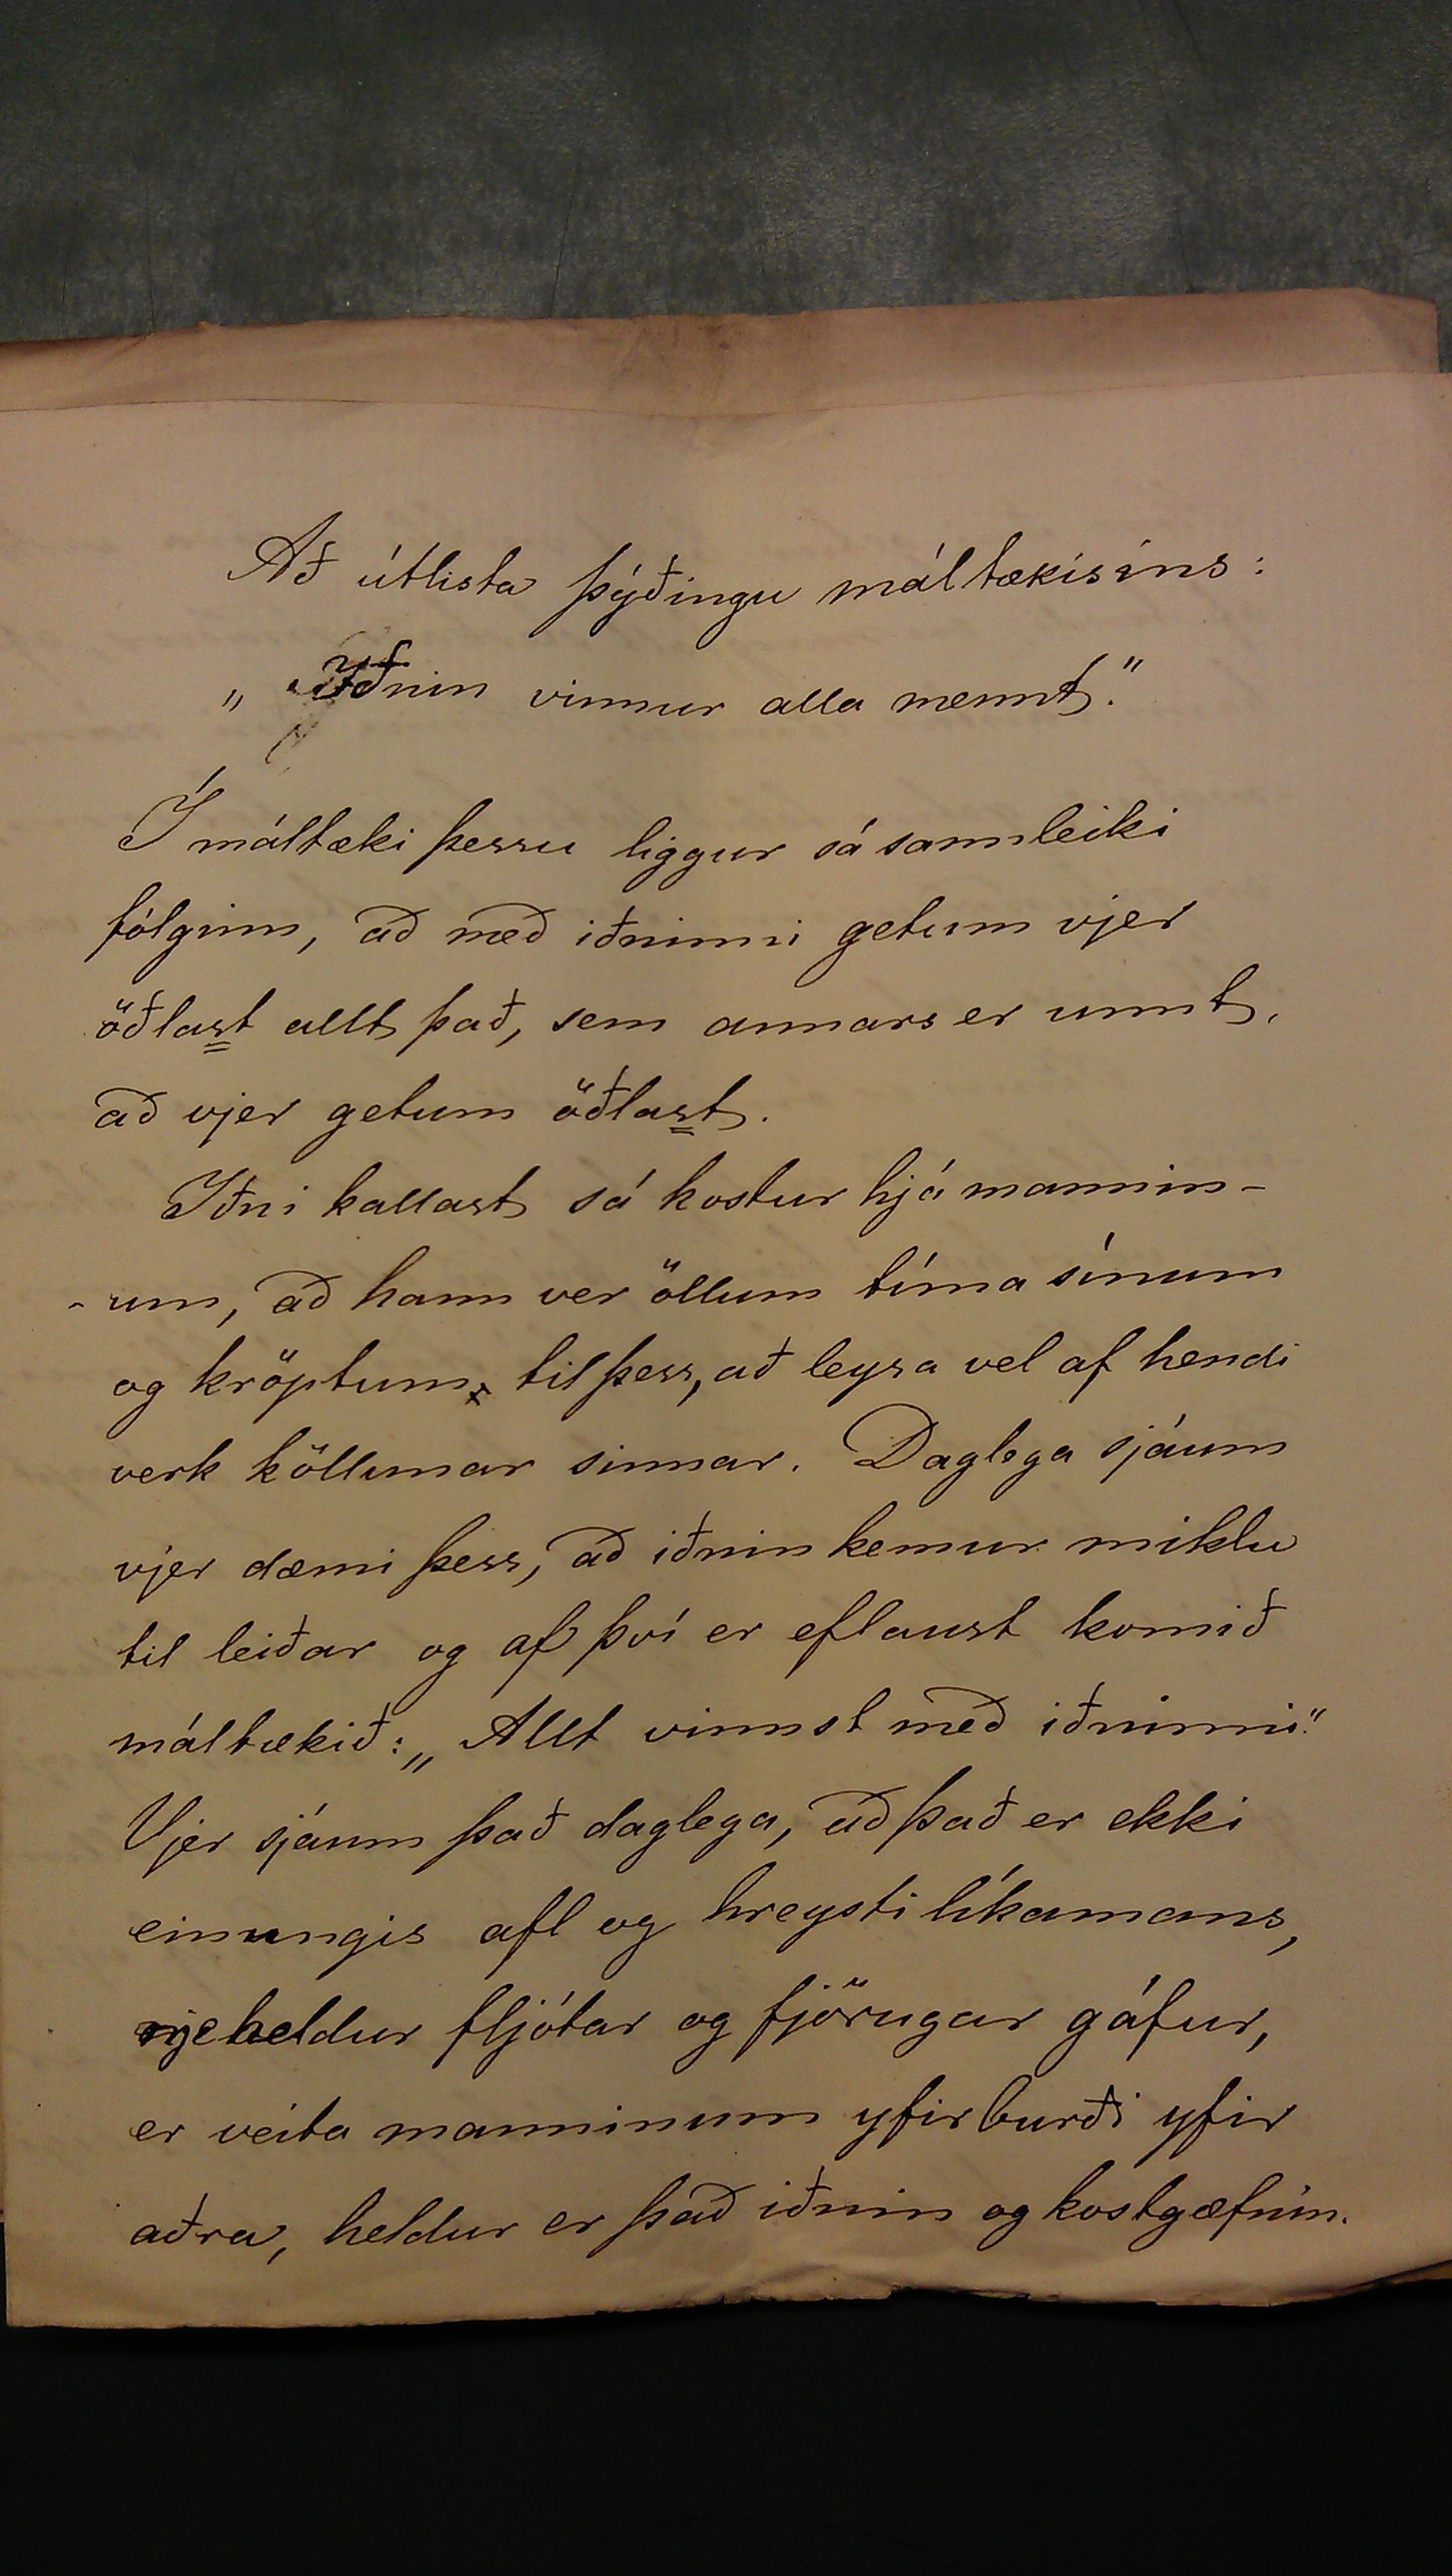 Að útlista þýðingu máltækisins:
„Iðnin vinnur alla mennt."
Í máltæki þessu liggur sá sannleiki
fólginn, að með iðninni getum vjer
öðlast allt það, sem annars er unnt,
að vjer getum öðlast.
Iðni kallast sá kostur hjá mannin-
-um, að hann ver öllum tíma sínum
og kröptum til þess, að leysa vel af hendi
verk köllunar sinnar. Daglega sjáum
vjer dæmi þess, að iðnin kemur miklu
til leiðar og af því er eflaust komið
máltækið: „Allt vinnst með iðninni."
Vjer sjáum það daglega, að það er ekki
einungis afl og hreysti líkamans,
nje heldur fljótar og fjörugar gáfur,
er veita manninum yfirburði yfir
aðra, heldur er það iðnin og kostgæfnin.